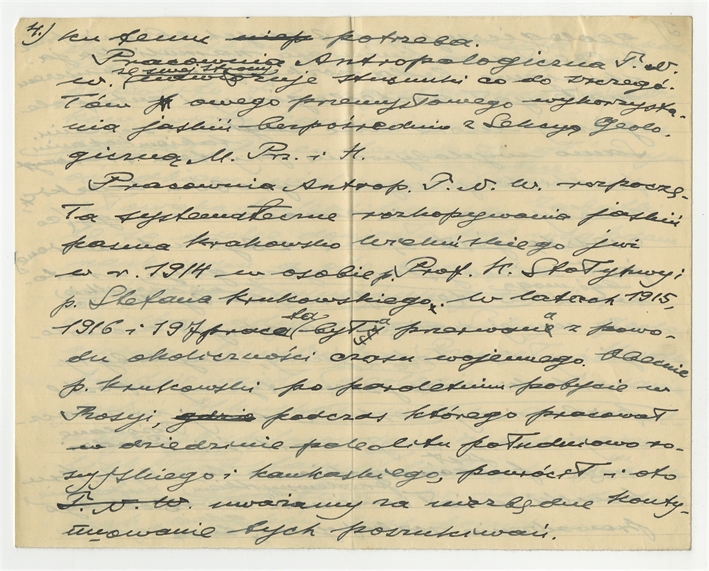 4.) ku temu niep potrzeba.
Pracownia Antropologiczna T. N.
w. ze swej strony nawiązuje stosunki co do szczegó-
łów owego przemysłowego wykorzysta-
nia jaskiń bezpośrednio z Sekcyą Geolo-
giczną M. Prz. i H.
Pracownia Antrop. T. N. W. rozpoczę-
ła systematyczne rozkopywania jaskiń
pasma Krakowsko Wieluńskiego już
w r. 1914 w osobie p. Prof. K. Stołyhwy i
p. Stefana Krukowskiego. W latach 1915,
1916 i 197 praca ta była przerwana z powo-
du okoliczności czasu wojennego. Obecnie
p. Krukowski po paroletnim pobycie w
Rosyi, gdzie podczas którego pracował
w dziedzinie paleolitu południowo ro-
syjskiego i kaukaskiego, powrócił i oto
T. N. W. uważamy za niezbędne konty-
nuowanie tych poszukiwań.